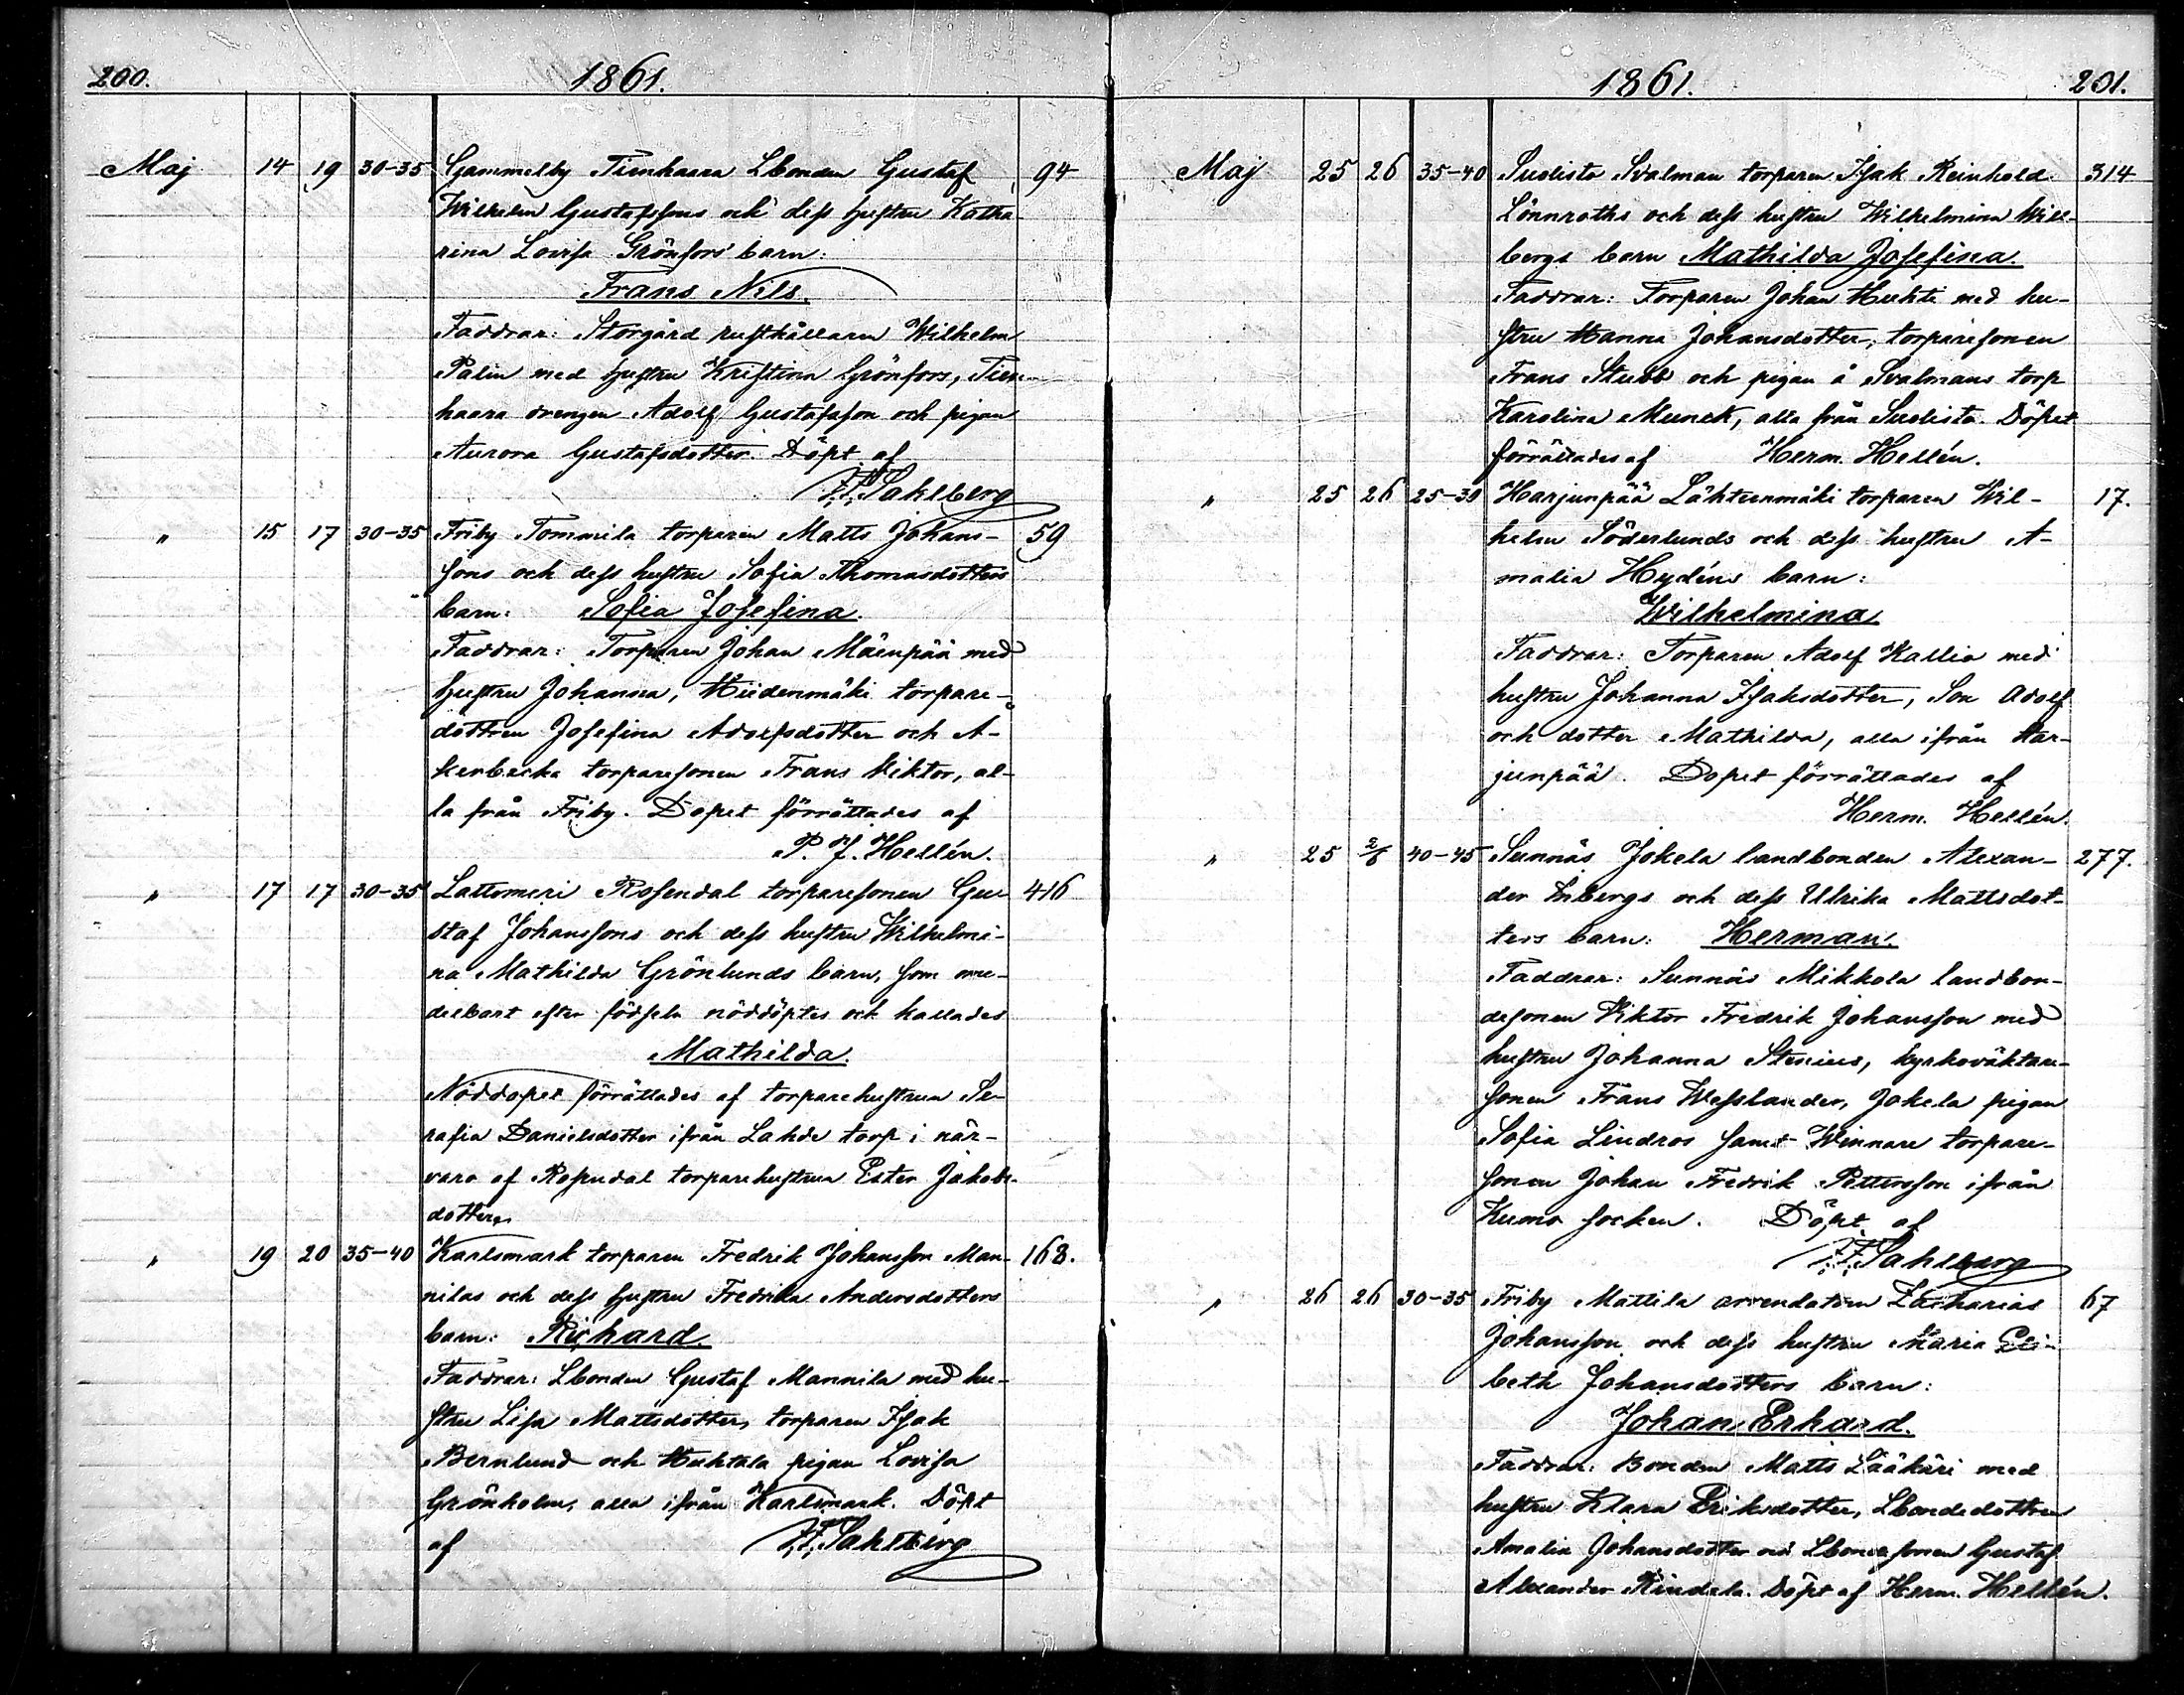 200. 1861.
Maj 14 19 30-35 Gammelby Timhaara Lbonden Gustaf 94
Wilhelm Gustafssons och dess hustru Katha-
rina Lovisa Grönfors' barn:
Frans Nils.
Faddrar: Storgård rusthållaren Wilhelm
Palin med hustru Kristina Grönfors, Tim-
haara drengen Adolf Gustafsson och pigan
Aurora Gustafsdotter. Döpt af
F.F. Sahlberg
" 15 17 30-35 Friby Tommila torparen Matts Johans- 59
sons och dess hustru Sofia Thomasdotters
barn: Sofia Josefina.
Faddrar: Torparen Johan Mäenpää med
hustru Johanna, Hiidenmäki torpare-
dottren Josefina Adolfsdotter och A-
kerbacka torparesonen Frans Viktor, al-
la från Friby. Dopet förrättades af
P. J. Hellén.
" 17 17 30-35 Lattomeri Rosendal torparesonen Gu- 416
staf Johanssons och dess hustru Wilhelmi-
na Mathilda Grönlunds barn, som ome-
delbart efter födseln nöddöptes och kallades
Mathilda.
Nöddopet förrättades af torparehustrun Se-
rafia Danielsdotter ifrån Lahde torp i när-
varo af Rosendal torparehustrun Ester Jakobs-
dotter.
" 19 20 35-40 Karlsmark torparen Fredrik Johansson Man- 168.
nilas och dess hustru Fredrika Andersdotters
barn: Richard.
Faddrar: Lbonden Gustaf Mannila med hu-
stru Lisa Mattsdotter, torparen Isak
Bernlund och Huhtala pigan Lovisa
Grönholm, alla ifrån Karlsmark. Döpt
af F.F. Sahlberg
1861. 201.
Maj 25 26 35-40 Suolisto Svalman torparen Isak Reinhold 314
Lönnroths och dess hustru Wilhelmina Will-
bergs barn Mathilda Josefina.
Faddrar: Torparen Johan Huhti med hu-
stru Hanna Johansdotter, torparesonen
Frans Stubb och pigan å Svalmans torp
Karolina Munck, alla från Suolisto. Döpet
förrättades af Herm. Hellén.
" 25 26 25-30 Harjunpää Lähteenmäki torparen Wil- 17.
helm Söderlunds och dess hustru A-
malia Hydéns barn:
Wilhelmina
Faddrar: Torparen Adolf Kallio med
hustru Johanna Isaksdotter, Son Adolf
och dotter Mathilda, alla ifrån Har-
junpää. Dopet förrättades af
Herm. Hellén.
" 25 2/6 40-45 Sunnäs Jokela landbonden Alexan- 277.
der Enbergs och dess Ulrika Mattsdot-
ters barn: Herman.
Faddrar: Sunnäs Mikkola landbon-
desonen Viktor Fredrik Johansson med
hustru Johanna Stenius, kyrkoväktare-
sonen Frans Wesslander, Jokela pigan
Sofia Lindros samt Winnare torpare-
sonen Johan Fredrik Pettersson ifrån
Kumo socken. Döpt af
F.F. Sahlberg
" 26 26 30-35 Friby Mattila arrendatorn Zacharias 67
Johansson och dess hustru Maria Eli-
beth Johansdotters barn:
Johan Erhard.
Faddrar: Bonden Matts Lääkäri med
hustru Klara Eriksdotter, Lbondedottren
Amalia Johansdotter och Lbondesonen Gustaf
Alexander Rindala. Döpt af Herm. Hellén.